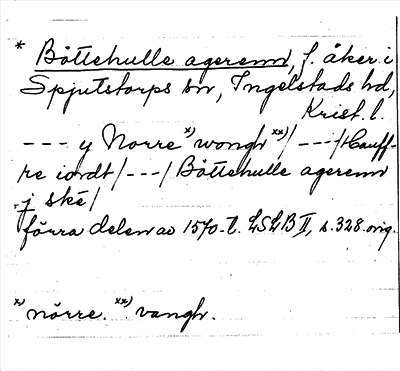 * Böttehulle agerenn, f. åker i
Spjutstorps sn, Ingelstads hd,
Krist. l.
--- y Norre x) wongh xx)/ ---/Hauff-
re iordt/---/ Böttehulle agerenn
j ské/
förra delen av 1570-t. LSLB II, s. 328. orig.
x) nörre. xx) vangh.